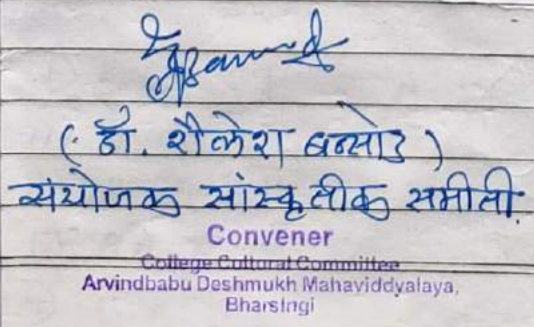 (डॉ. शैलेश बन्सोड)
संयोजक सांस्कृतीक समीती.
Convener
College Cultural Committee
Arvindbabu Deshmukh Mahaviddyalaya,
Bharsingi